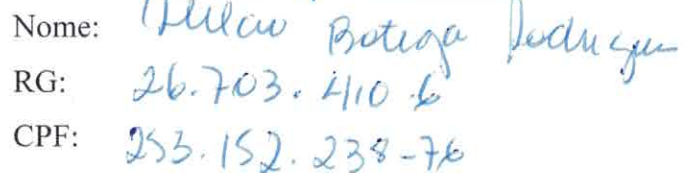 Nome: Botega Rodrigues
RG: 26.703.410.6
CPF: 253.152.238-76